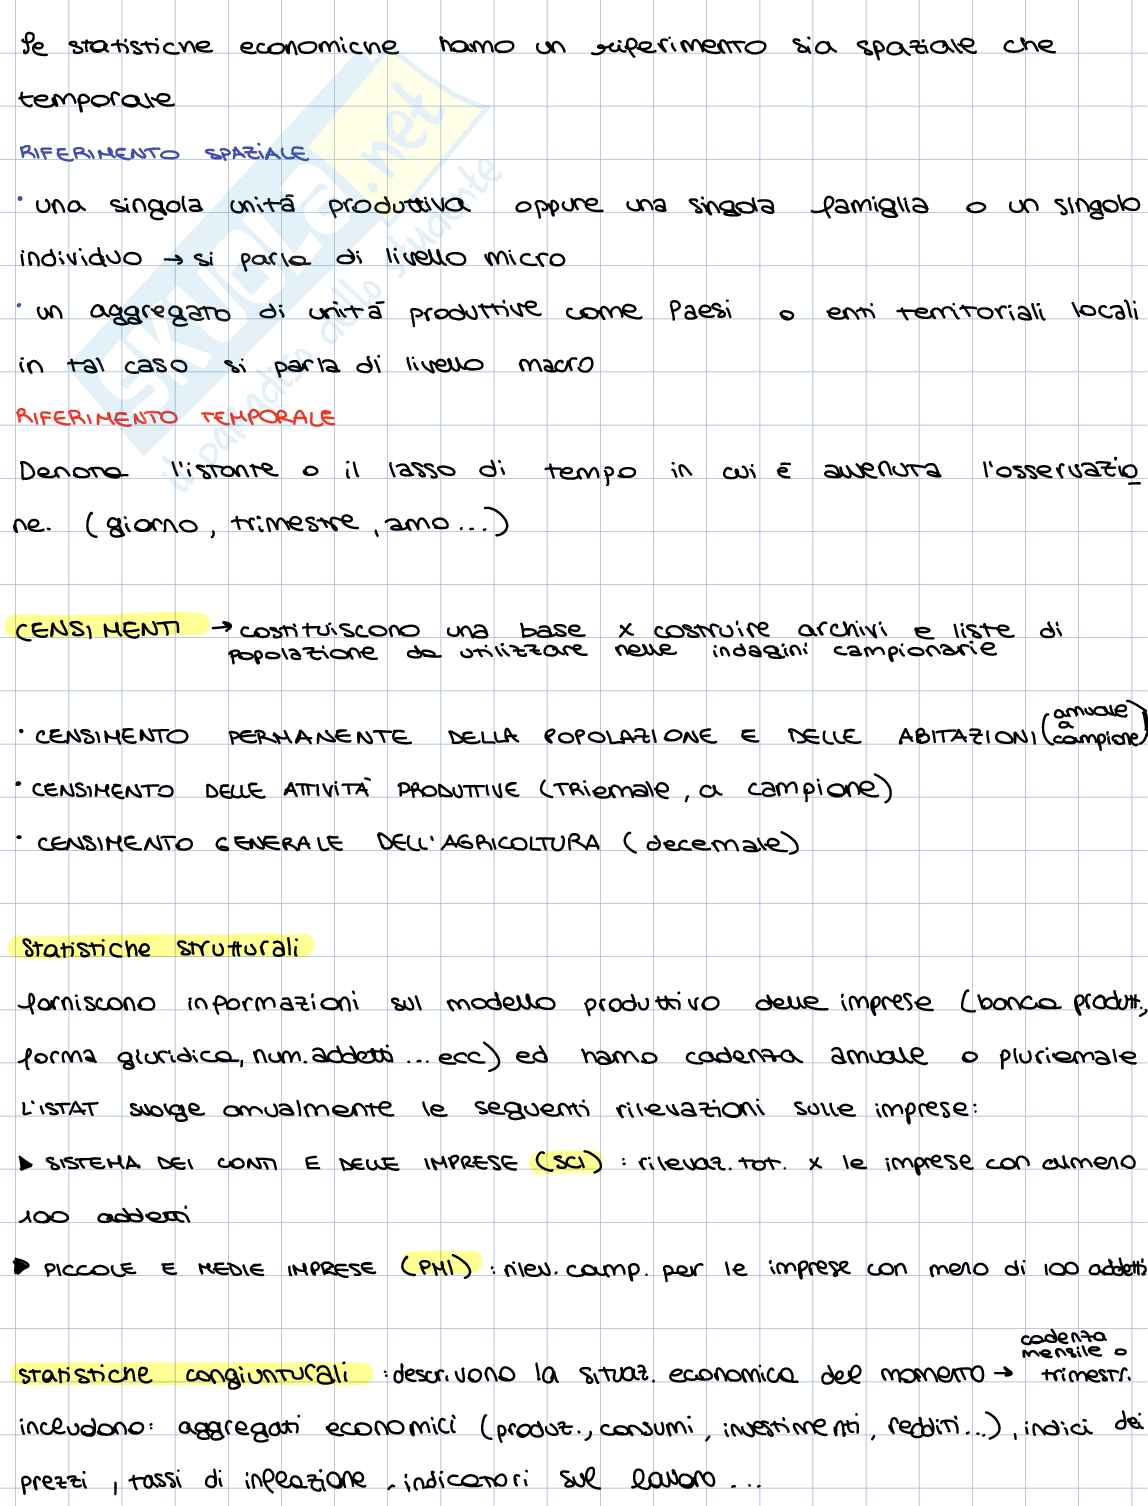 Le statistiche economiche hanno un riferimento sia spaziale che
temporale
RIFERIMENTO SPAZIALE
• una singola unità produttiva oppure una singola famiglia o un singolo
individuo → si parla di livello micro
• un aggregato di unità produttive come Paesi o enti territoriali locali
in tal caso si parla di livello macro
RIFERIMENTO TEMPORALE
Denota l'istante o il lasso di tempo in cui è avvenuta l'osservazio
ne. (giorno, trimestre, anno...)
CENSIMENTI → costituiscono una base x costruire archivi e liste di
popolazione da utilizzare nelle indagini campionarie
• CENSIMENTO PERMANENTE DELLA POPOLAZIONE E DELLE ABITAZIONI (annuale a campione)
• CENSIMENTO DELLE ATTIVITÀ PRODUTTIVE (Triennale, a campione)
• CENSIMENTO GENERALE DELL'AGRICOLTURA (decennale)
Statistiche strutturali
forniscono informazioni sul modello produttivo delle imprese (banca produtt.,
forma giuridica, num. addetti ... ecc) ed hanno cadenza annuale o pluriennale
L'ISTAT svolge annualmente le seguenti rilevazioni sulle imprese:
▶ SISTEMA DEI CONTI E DELLE IMPRESE (SCI) : rilevaz. tot. x le imprese con almeno
100 addetti
▶ PICCOLE E MEDIE IMPRESE (PMI) : rilev. camp. per le imprese con meno di 100 addetti
statistiche congiunturali : descrivono la situaz. economica del momento → cadenza mensile o trimestr.
includono: aggregati economici (produz., consumi, investimenti, redditi...), indici dei
prezzi, tassi di inflazione, indicatori sul lavoro ...
SKUOLA.net
il paradiso dello studente